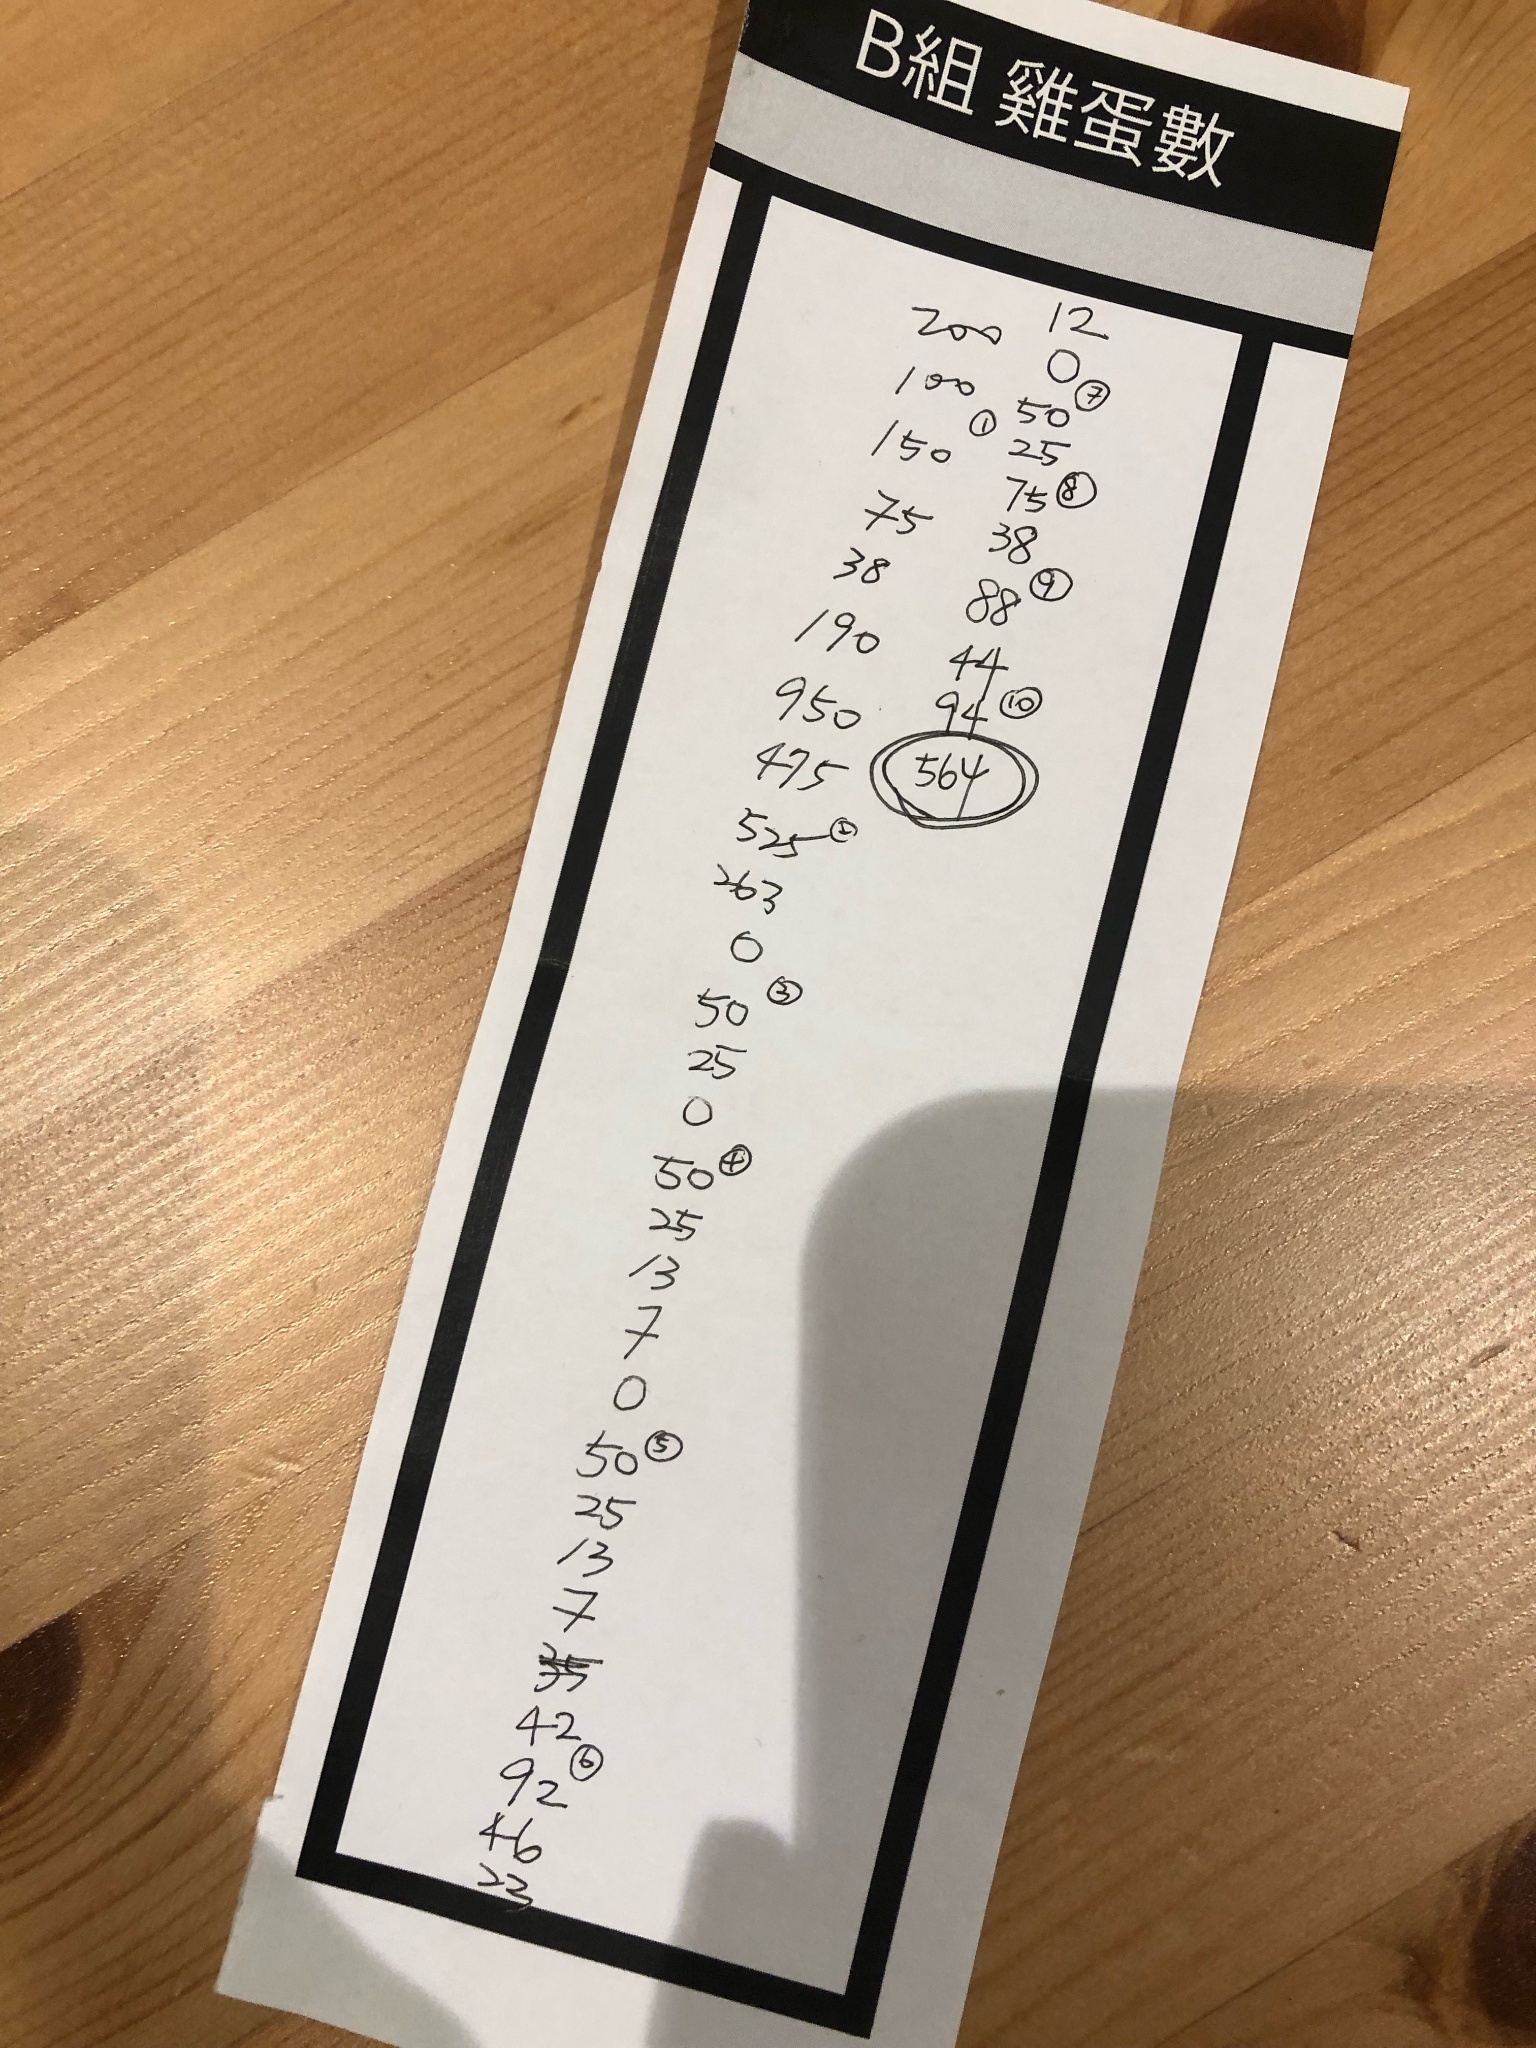 B組 雞蛋數
200
100
150 ①
75
38
190
950
475
525 ②
263
0
50 ③
25
0
50 ④
25
13
7
0
50 ⑤
25
13
7
35
42
92 ⑥
46
23
12
0
50 ⑦
25
75 ⑧
38
88 ⑨
44
94 ⑩
564